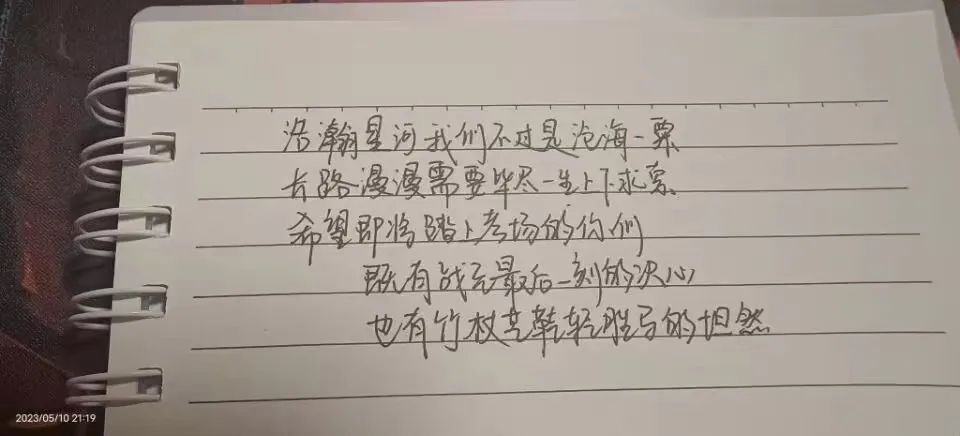 浩瀚星河我们不过是沧海一粟
长路漫漫需要毕尽一生上下求索
希望即将踏上考场的你们
既有战至最后一刻的决心
也有竹杖芒鞋轻胜马的坦然
2023/05/10 21:19